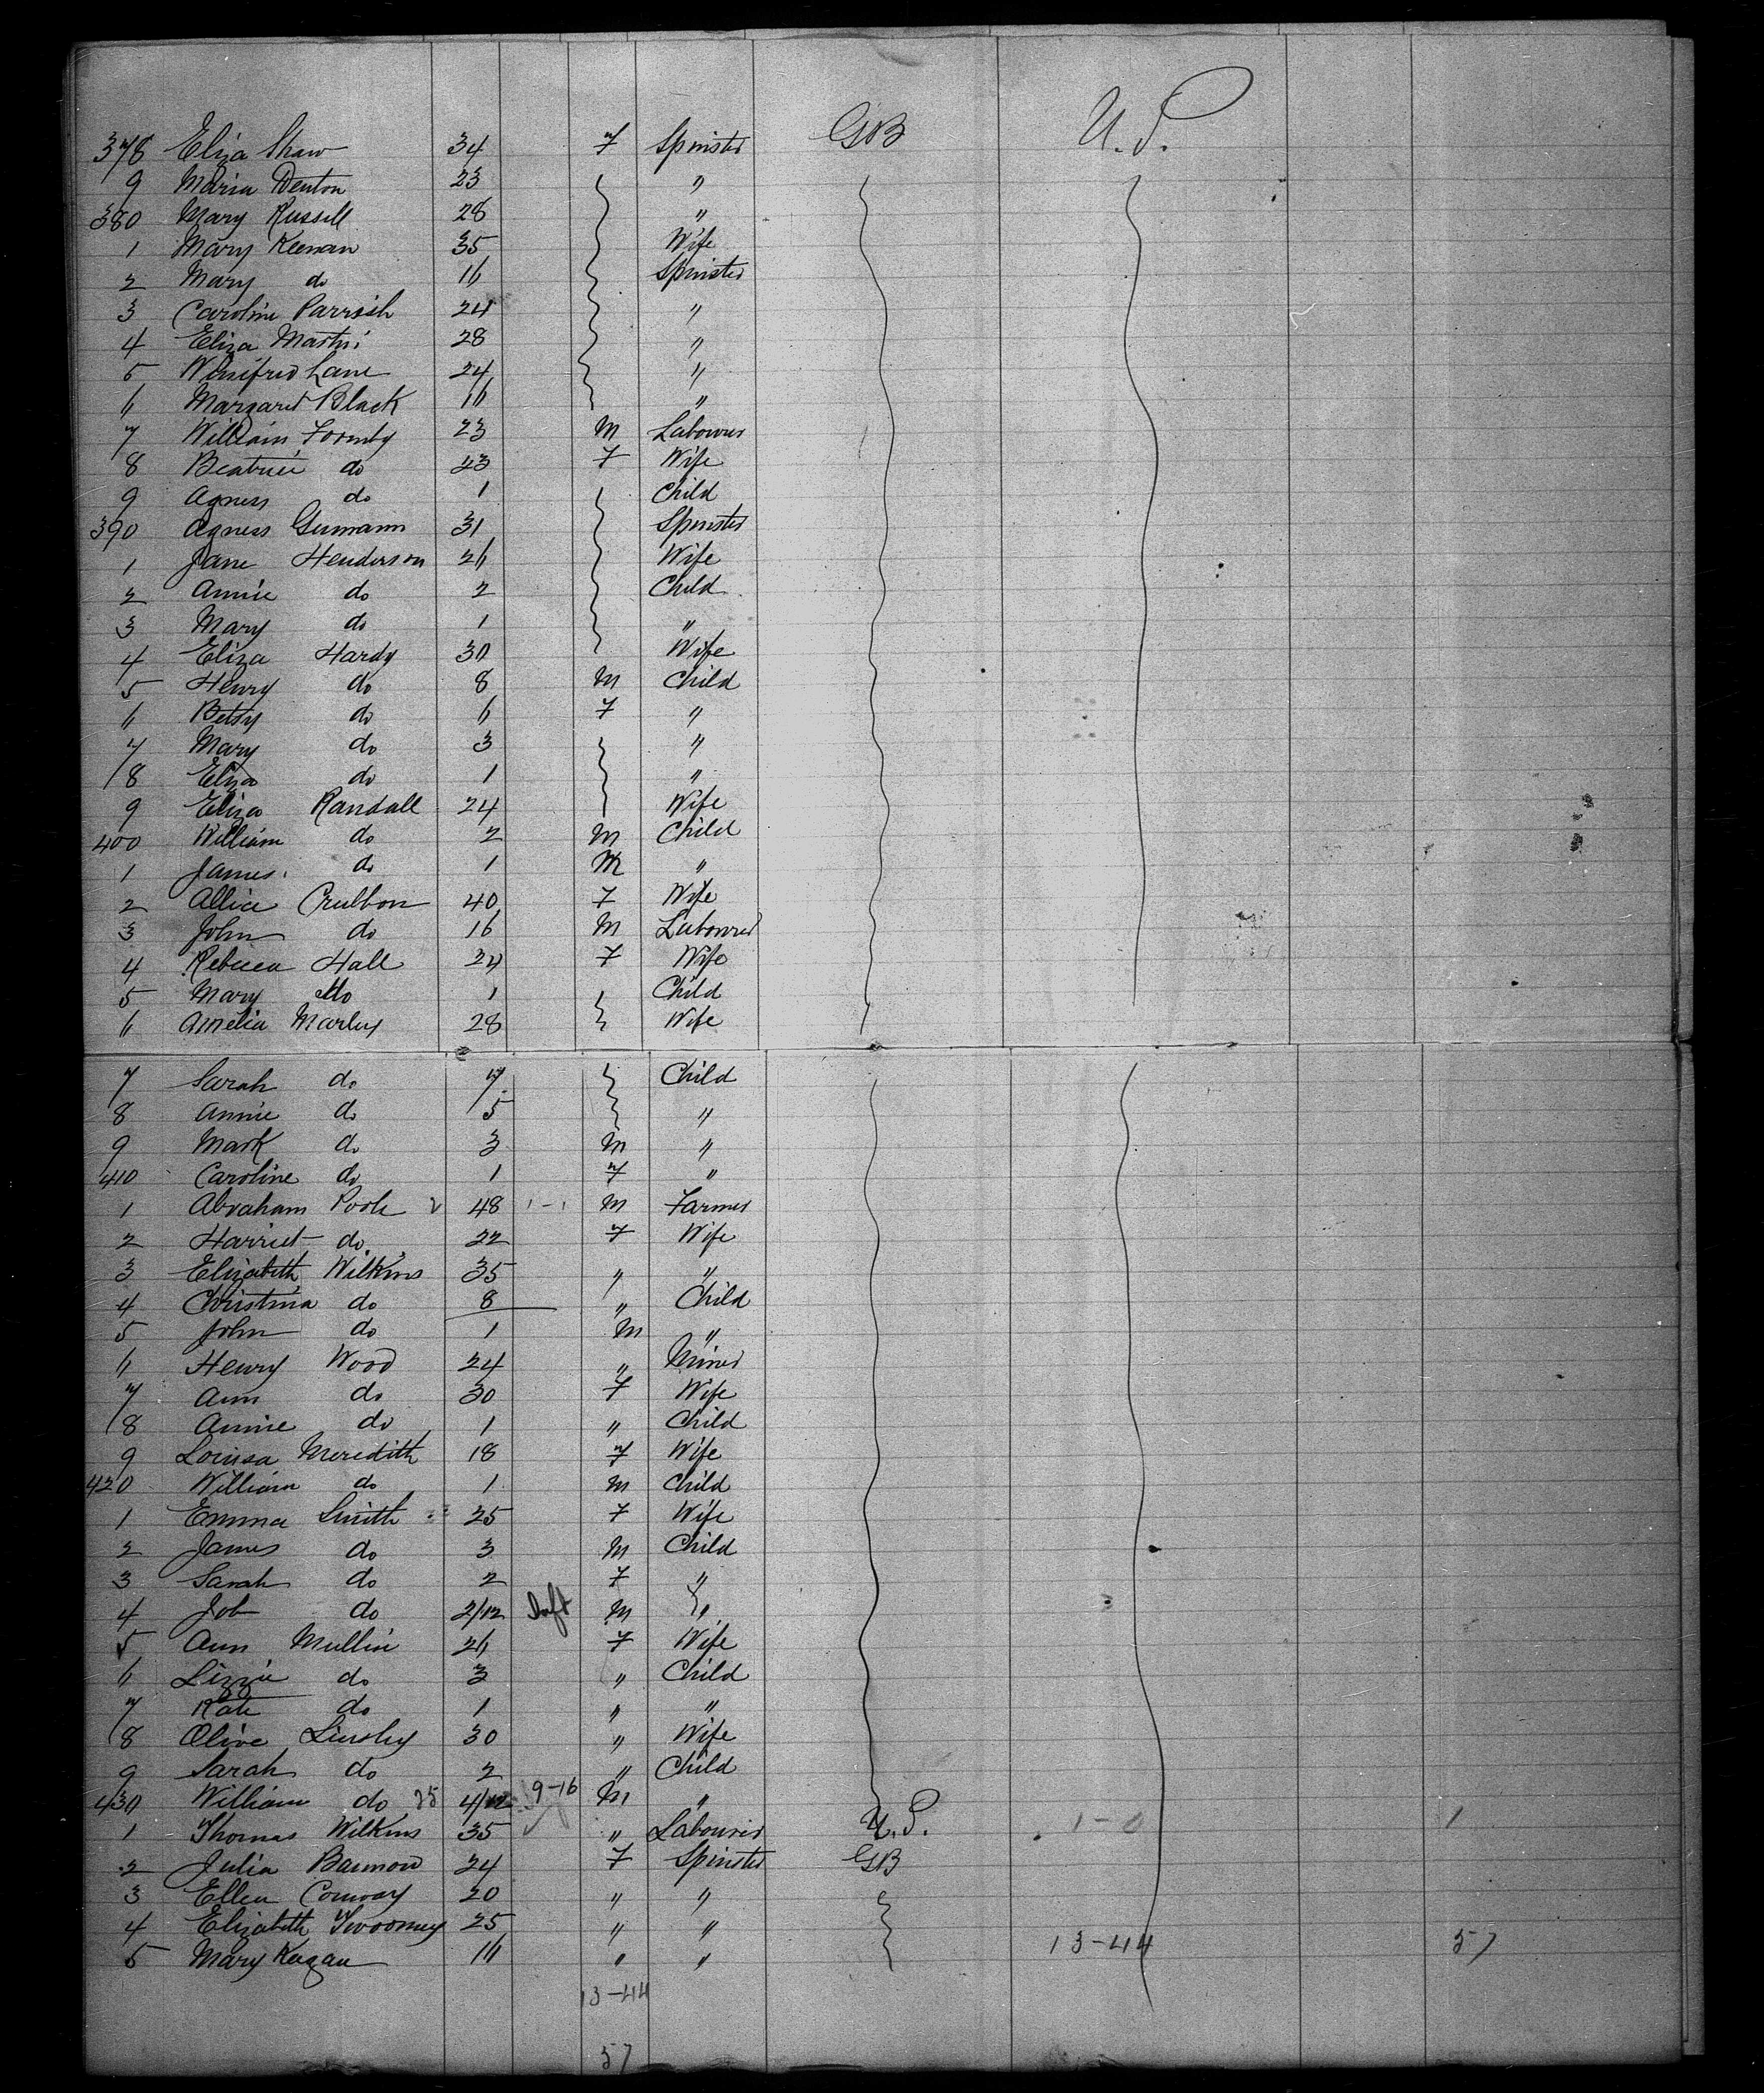 378 Eliza Shaw 34 F Spinster GB U.S.
9 Maria Denton 23 "
380 Mary Russell 28 "
1 Mary Keenan 35 Wife
2 Mary do 16 Spinster
3 Caroline Parrish 24 "
4 Eliza 28 "
5 Winifred Lane 24 "
6 Margaret Black 16 "
7 William Formby 23 M Labourer
8 Beatrice do 23 F Wife
9 Agness do 1 Child
390 Agness 31 Spinster
1 Jane Henderson 26 Wife
2 Annie do 2 Child
3 Mary do 1 "
4 Eliza Hardy 30 Wife
5 Henry do 8 M Child
6 Betsy do 6 F "
7 Mary do 3 "
8 Eliza do 1 "
9 Eliza Randall 24 Wife
400 William do 2 M Child
1 James do 1 M "
2 Allice 40 F Wife
3 John do 16 M Labourer
4 Rebecca Hall 24 F Wife
5 Mary do 1 Child
6 Amelia Marley 28 Wife
7 Sarah do 7 Child
8 Annie do 5 "
9 Mark do 3 M "
410 Caroline do 1 F "
1 Abraham Poole 48 1-1 M Farmer
2 Harriet do 22 F Wife
3 Elizabeth Wilkins 35 " "
4 Christina do 8 " Child
5 John do 1 M "
6 Henry Wood 24 " Miner
7 Ann do 30 F Wife
8 Annie do 1 " Child
9 Louisa Meredith 18 F Wife
420 William do 1 M Child
1 Emma Smith 25 F Wife
2 James do 3 M Child
3 Sarah do 2 F "
4 Job do 2/12 Inft M "
5 Ann Mullin 26 F Wife
6 Lizzie do 3 " Child
7 Kate do 1 " "
8 Olive Linsley 30 " Wife
9 Sarah do 2 " Child
430 William do 4/12 9-16 M "
1 Thomas Wilkins 35 " Labourer U.S. 1-0 1
2 Julia 24 F Spinster GB
3 Ellen Conway 20 " "
4 Elizabeth Twoomey 25 " "
5 Mary Keegan 16 " " 13-44 57
13-44
57